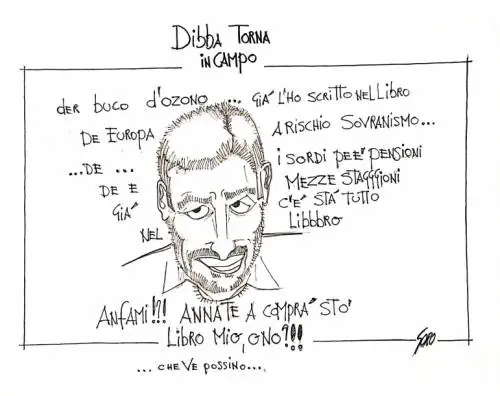 Dibba Torna
in Campo
der buco d'ozono ... già l'ho scritto nel libro
De Europa
a rischio sovranismo...
...De ...
i sordi pe e' pensioni
De e
mezze stagggioni
già
c'è sta' tutto
nel
libbbro
Anfami!?! Annate a compra' sto'
libro mio, o no?!!
... che ve possino....
Soro